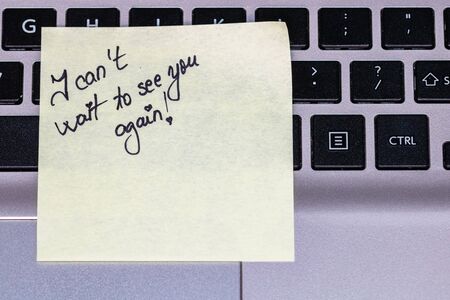 G H : ;
I can't
wait to see you
again!
> . ? / ⇧ S
CTRL